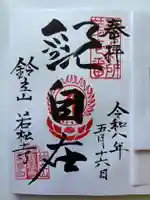 奉拝
令和八年
五月十六日
自在
鈴立山 若松寺